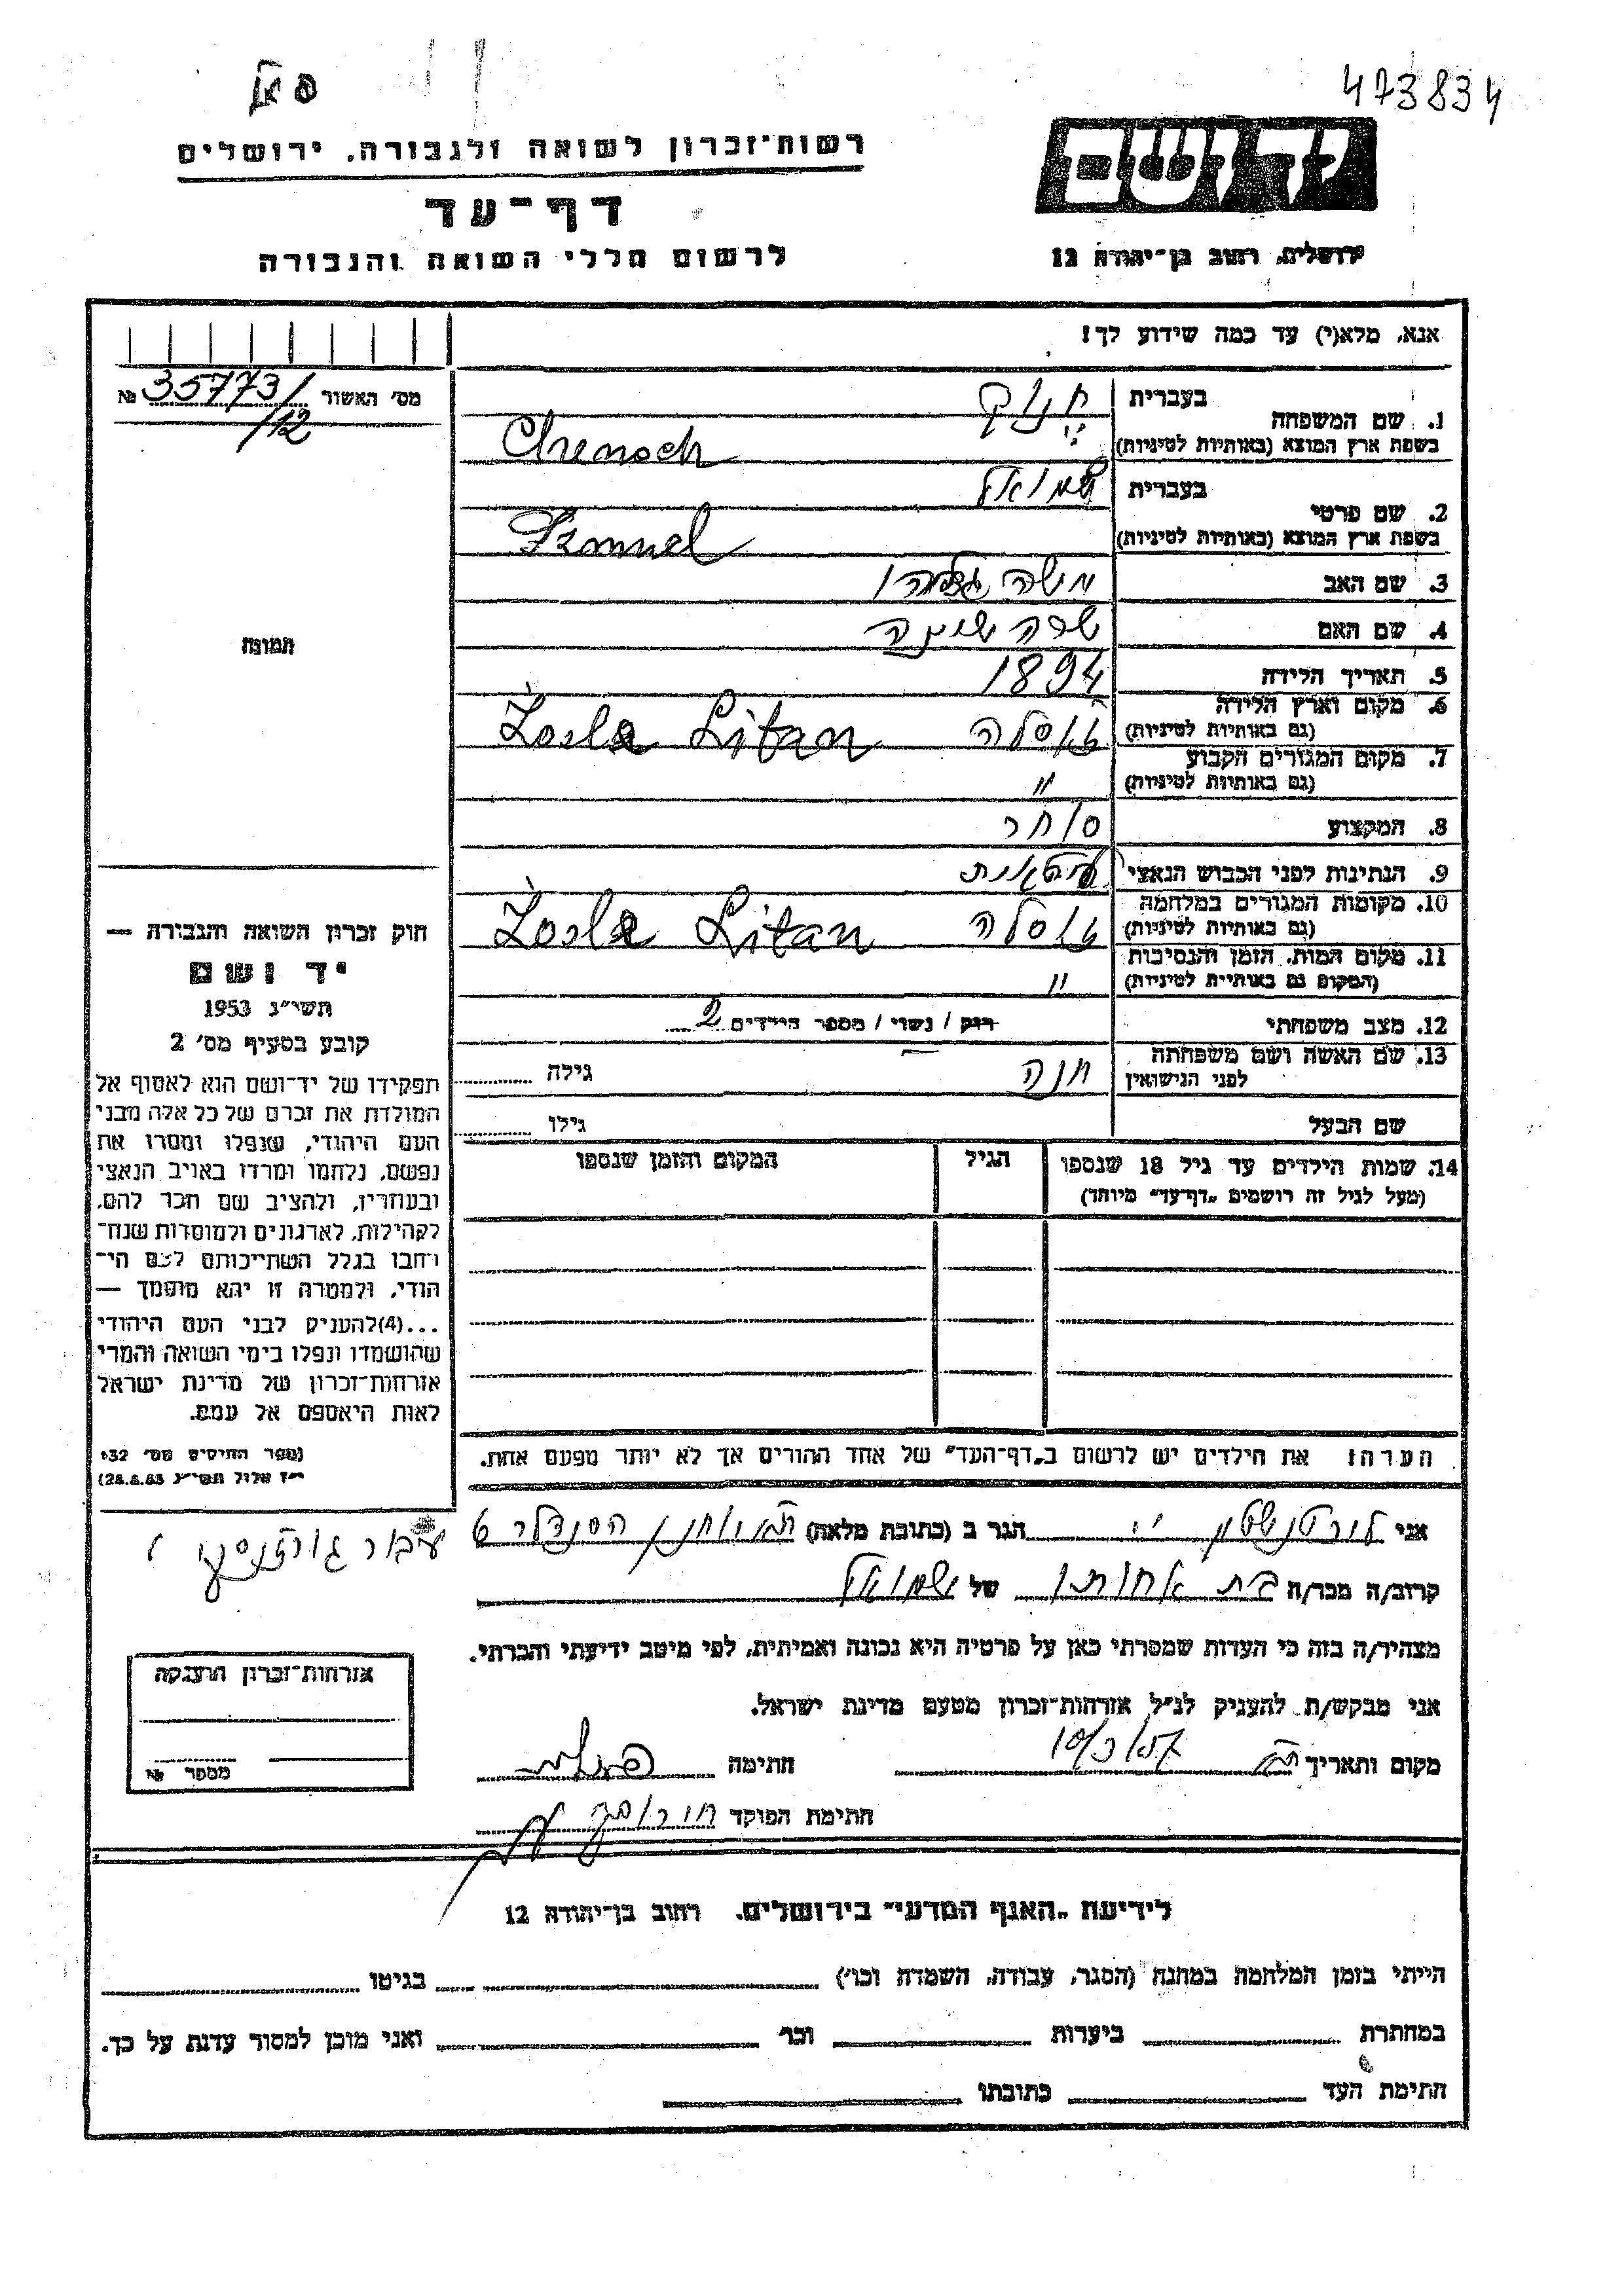 473834
רשות־זכרון לשואה ולגבורה, ירושלים
יד ושם
דף־עד
ירושלים, רחוב בן־יהודה 12
לרשום חללי השואה והגבורה
אנא, מלא(י) עד כמה שידוע לך!
מס' האשור 35773/ №
/12
1. שם המשפחה בעברית
בשפת ארץ המוצא (באותיות לטיניות) Chenoch
2. שם פרטי בעברית שמואל
בשפת ארץ המוצא (באותיות לטיניות) Szmuel
3. שם האב משה
4. שם האם שרה שיינה
5. תאריך הלידה 1894
6. מקום וארץ הלידה
(גם באותיות לטיניות) Żosla Litan
7. מקום המגורים הקבוע
(גם באותיות לטיניות) "
8. המקצוע סוחר
9. הנתינות לפני הכבוש הנאצי ליטאית
10. מקומות המגורים במלחמה
(גם באותיות לטיניות) Żosla Litan
11. מקום המות, הזמן והנסיבות
(המקום גם באותיית לטיניות) "
12. מצב משפחתי רווק / נשוי / מספר הילדים 2
13. שם האשה ושם משפחתה
לפני הנישואין חנה גילה
שם הבעל גילו
14. שמות הילדים עד גיל 18 שנספו הגיל המקום והזמן שנספו
(מעל לגיל זה רושמים "דף־עד" מיוחד)
הערה: את הילדים יש לרשום ב"דף־העד" של אחד ההורים אך לא יותר מפעם אחת.
תמונה
חוק זכרון השואה והגבורה —
יד ושם
תשי"ג 1953
קובע בסעיף מס' 2
תפקידו של יד־ושם הוא לאסוף אל
המולדת את זכרם של כל אלה מבני
העם היהודי, שנפלו ומסרו את
נפשם, נלחמו ומרדו באויב הנאצי
ובעוזריו, ולהציב שם וזכר להם,
לקהילות, לארגונים ולמוסדות שנח־
רחבו בגלל השתייכותם לעם הי־
הודי, ולמטרה זו יהא מוסמך —
...(4)להעניק לבני העם היהודי
שהושמדו ונפלו בימי השואה והמרי
אזרחות־זכרון של מדינת ישראל
לאות היאספם אל עמם.
(ספר החוקים מס' 132
י"ז אלול תשי"ג 28.8.53)
אני הגר ב (כתובת מלאה) יוחנן הסנדלר
קרוב/ה מכר/ה בת אחותו של שמואל
מצהיר/ה בזה כי העדות שמסרתי כאן על פרטיה היא נכונה ואמיתית, לפי מיטב ידיעתי והכרתי.
אני מבקש/ת להעניק לנ"ל אזרחות־זכרון מטעם מדינת ישראל.
מקום ותאריך חתימה
חתימת הפוקד
אזרחות־זכרון הוענקה
מספר №
לידיעת "האגף המדעי" בירושלים, רחוב בן־יהודה 12
הייתי בזמן המלחמה במחנה (הסגר, עבודה, השמדה וכו') בגיטו
במחתרת ביערות וכו' ואני מוכן למסור עדות על כך.
חתימת העד כתובתו